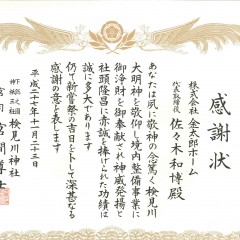 感謝状
株式会社 金太郎ホーム
代表取締役 佐々木和博殿
あなたは夙に敬神の念篤く検見川
大明神を敬仰し境内整備事業に
御浄財を御奉献され神威発揚と
社頭隆昌に赤誠を捧げられた功績は
誠に多大であります
仍て新嘗祭の吉日を卜して深甚なる
感謝の意を表します
平成二十七年十一月二十三日
検見川神社
宮司